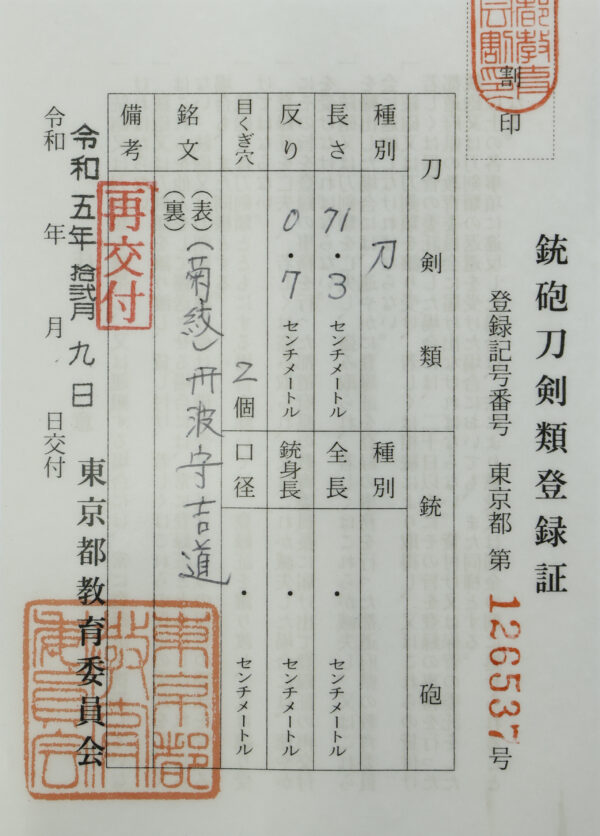 割印
都教育
会割印
銃砲刀剣類登録証
登録記号番号 東京都 第 126537 号
刀剣類
銃砲
種別 刀
種別
長さ 71.3 センチメートル
全長 ・ センチメートル
反り 0.7 センチメートル
銃身長 ・ センチメートル
目くぎ穴 2 個
口径 ・ センチメートル
銘文 (表)(菊紋)丹波守吉道
(裏)
備考
再交付
令和 年 月 日交付
令和五年拾弐月九日
東京都教育委員会
東京都
教育
委員会